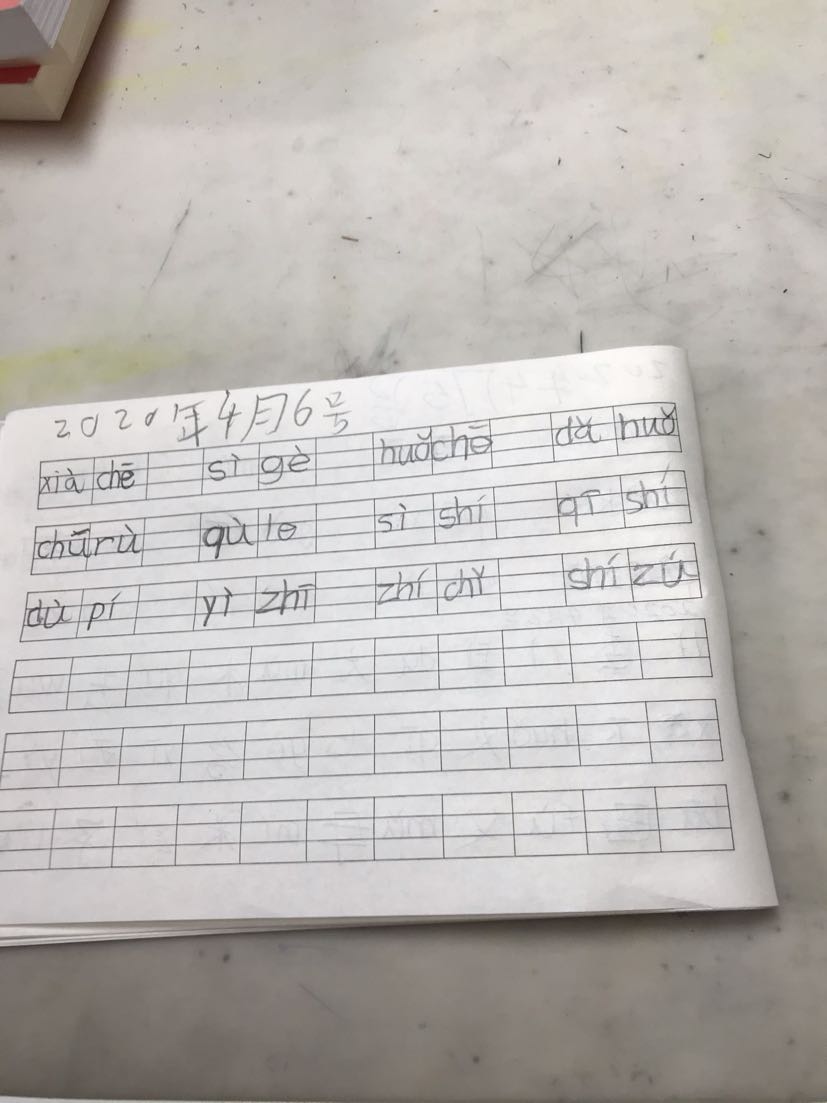 2020年4月6号
xià chē sì gè huǒchē dǎ huǒ
chūrù qù le sì shí qī shí
dù pí yì zhī zhí chǐ shí zú